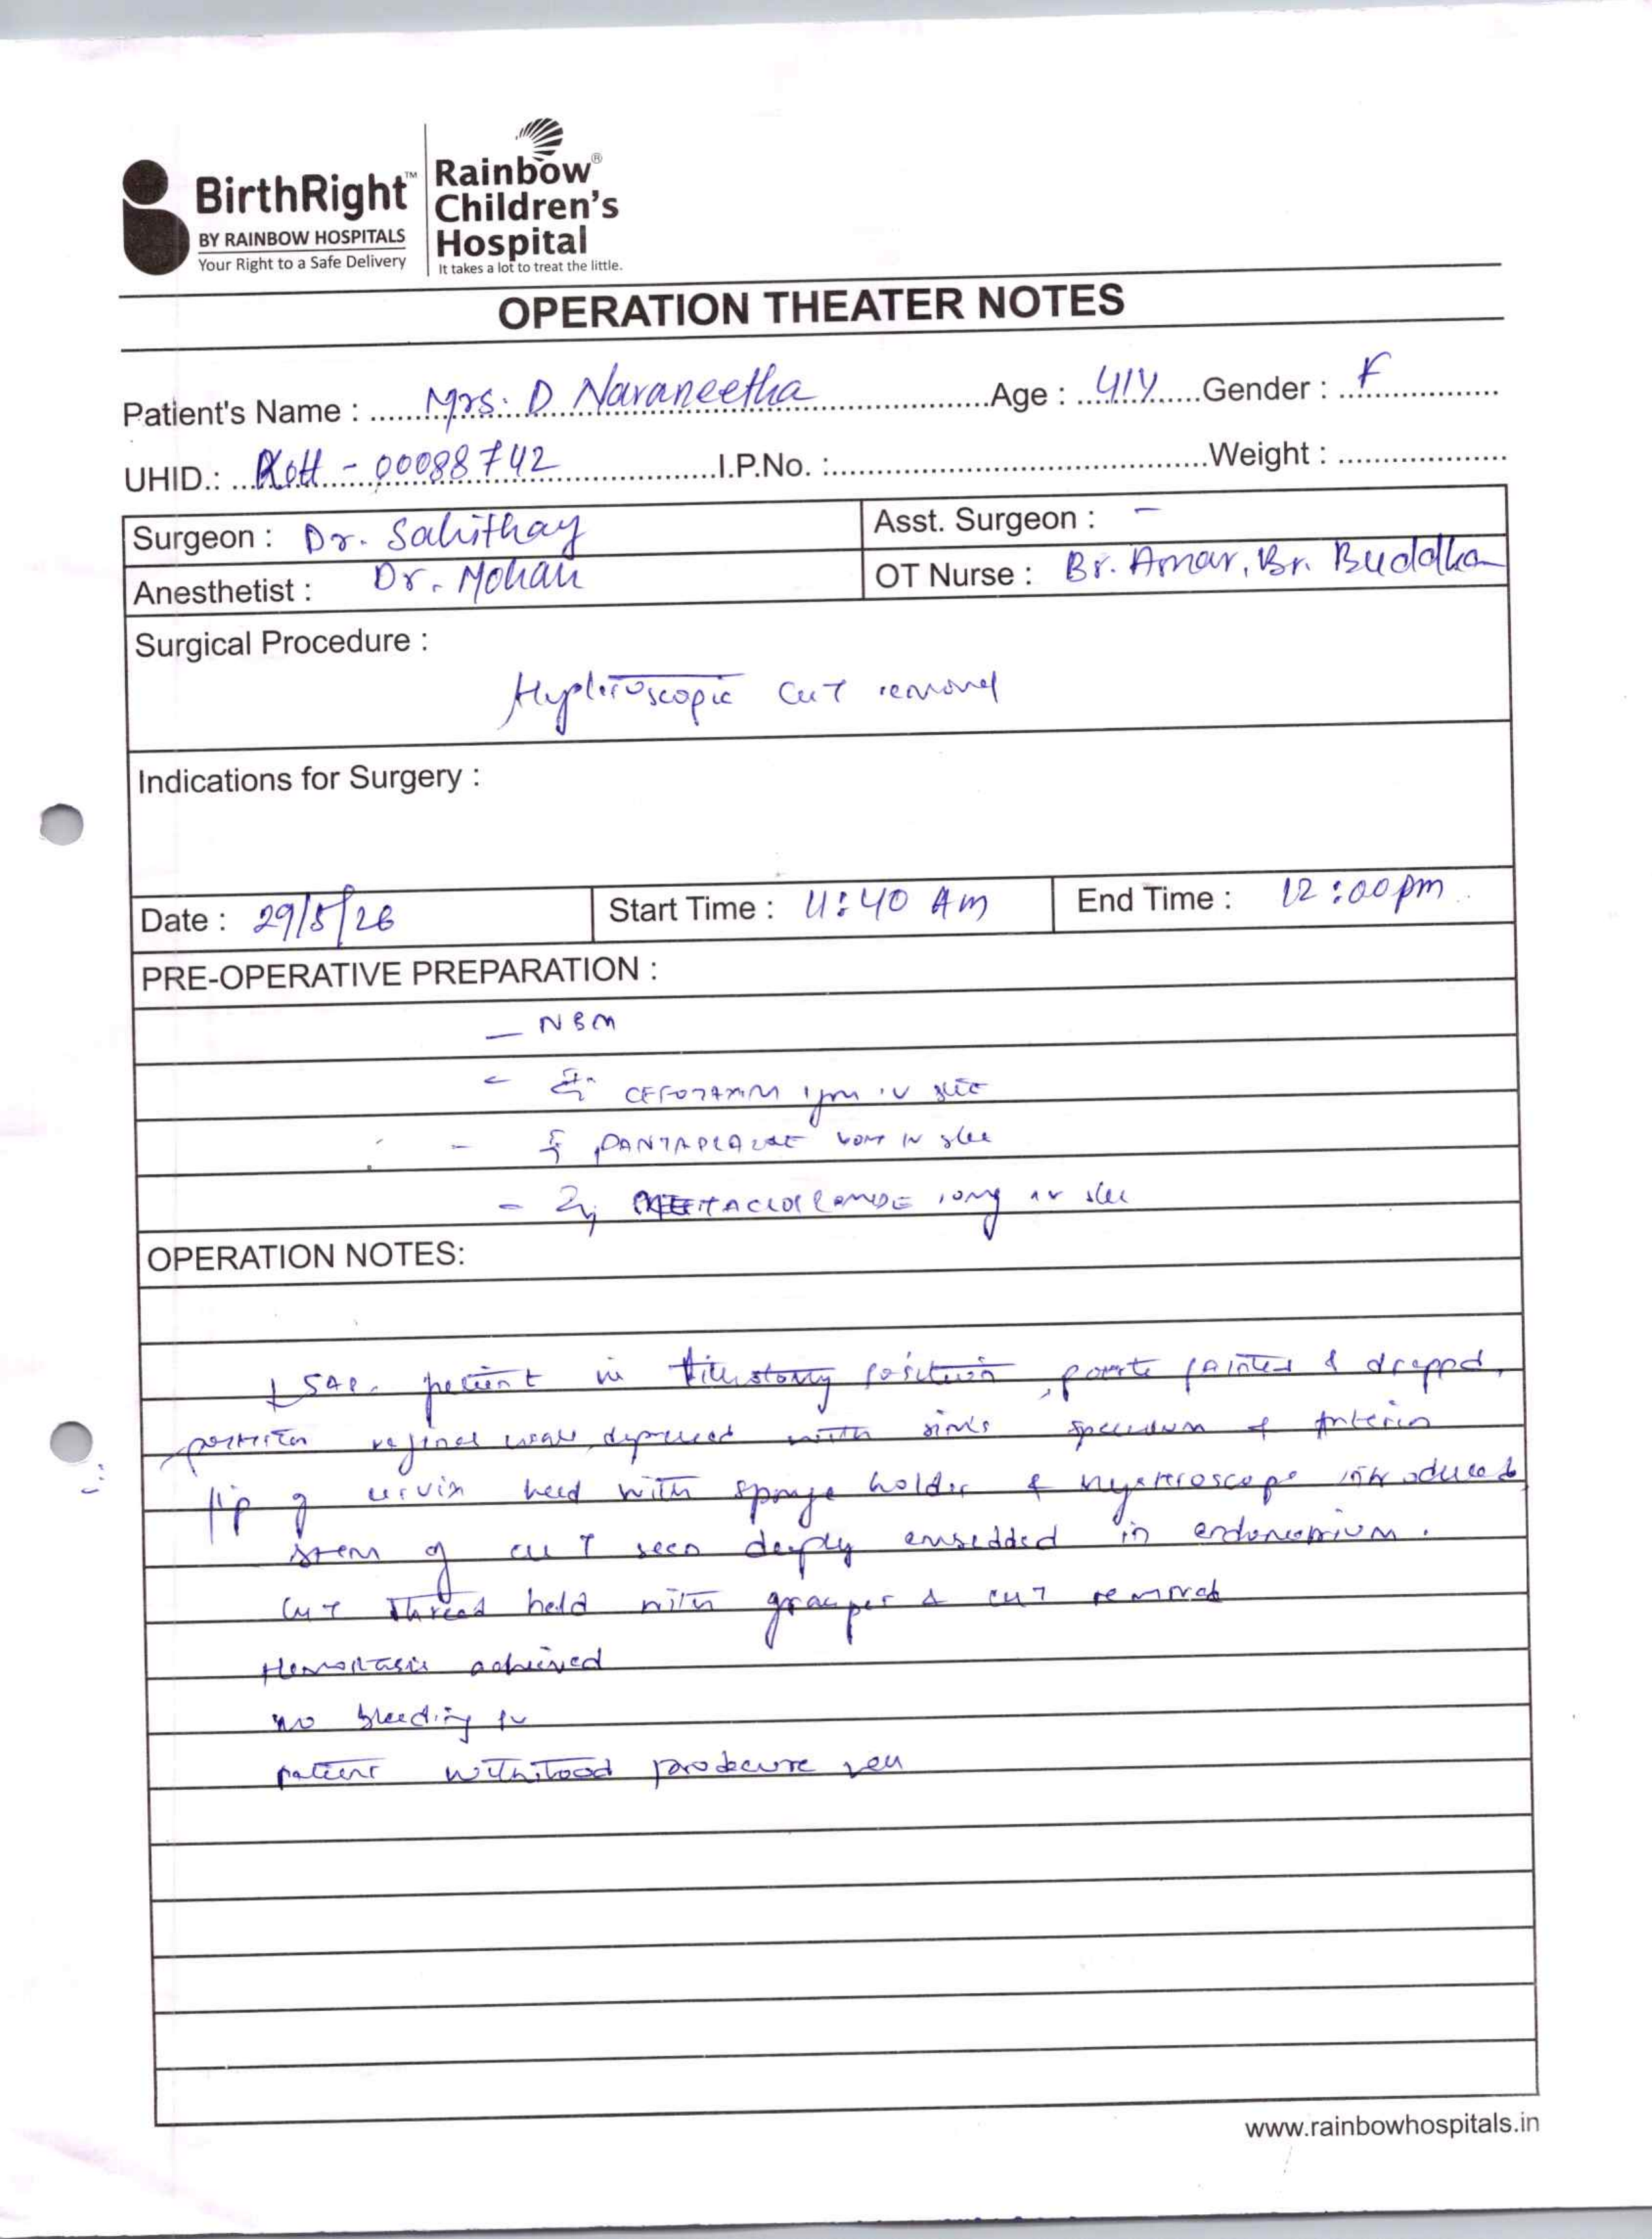 BirthRight™
BY RAINBOW HOSPITALS
Your Right to a Safe Delivery
Rainbow®
Children's
Hospital
It takes a lot to treat the little.
OPERATION THEATER NOTES
Patient's Name : Mrs. D Navaneetha Age : 41Y Gender : F
UHID.: - 00088742 I.P.No. : Weight :
Surgeon : Dr. Sahithay Asst. Surgeon : -
Anesthetist : Dr. Mohan OT Nurse : Br. Amar, Br. Buddha
Surgical Procedure :
CuT removal
Indications for Surgery :
Date : 29/5/26 Start Time : 11:40 Am End Time : 12:00pm
PRE-OPERATIVE PREPARATION :
- NBM
- 1gm IV
- IV
- 10mg IV
OPERATION NOTES:
patient in position, parts painted & drapped,
vaginal wall depressed with sim's speculum & Anterior
lip of cervix held with sponge holder & hysteroscope introduced
stem of cu T seen deeply embedded in endometrium.
Cu T thread held with grasper & cuT removed
Hemostasis achieved
no bleeding
patient withstood well
www.rainbowhospitals.in